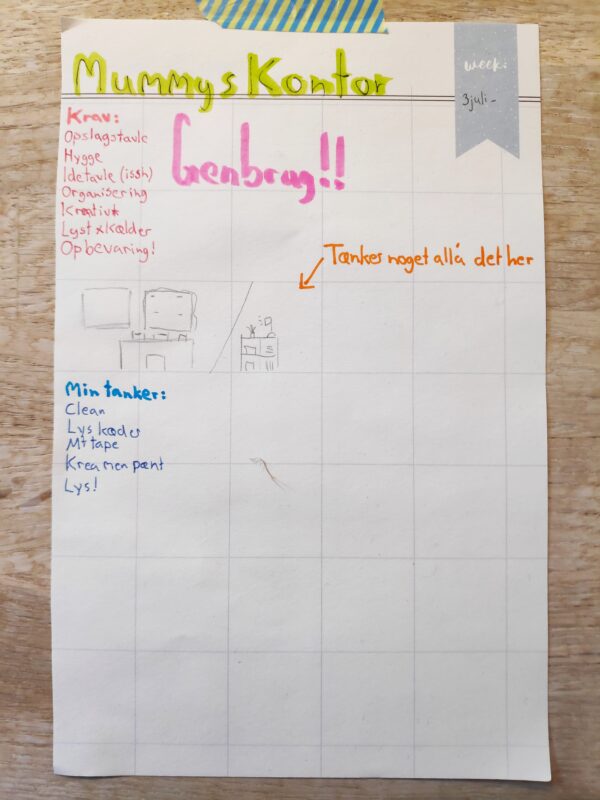 Mummys Kontor
week:
3 juli -
Krav:
Opslagstavle
Hygge
Idetavle (issh)
Organisering
Kreativt
Lyst x kælder
Opbevaring!
Genbrug!!
Tænkes noget allá det her
Min tanker:
Clean
Lys kæder
MT tape
Krea men pænt
Lys!